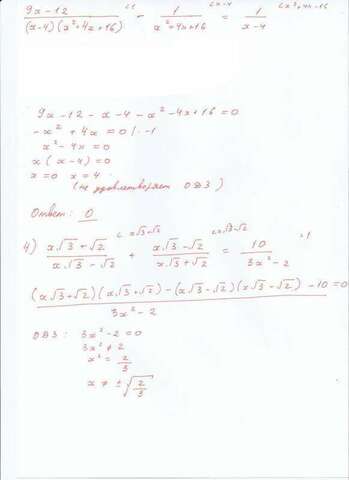 (9x-12)/((x-4)(x²+4x+16)) - 1/(x²+4x+16) = 1/(x-4)
9x-12-x-4-x²-4x+16=0
-x²+4x=0 |·-1
x²-4x=0
x(x-4)=0
x=0 x=4
(не удовлетворяет ОДЗ)
Ответ: 0
4) (x√3+√2)/(x√3-√2) + (x√3-√2)/(x√3+√2) = 10/(3x²-2)
((x√3+√2)(x√3+√2)-(x√3-√2)(x√3-√2)-10)/(3x²-2)=0
ОДЗ: 3x²-2=0
3x²≠2
x²=2/3
x≠±√(2/3)